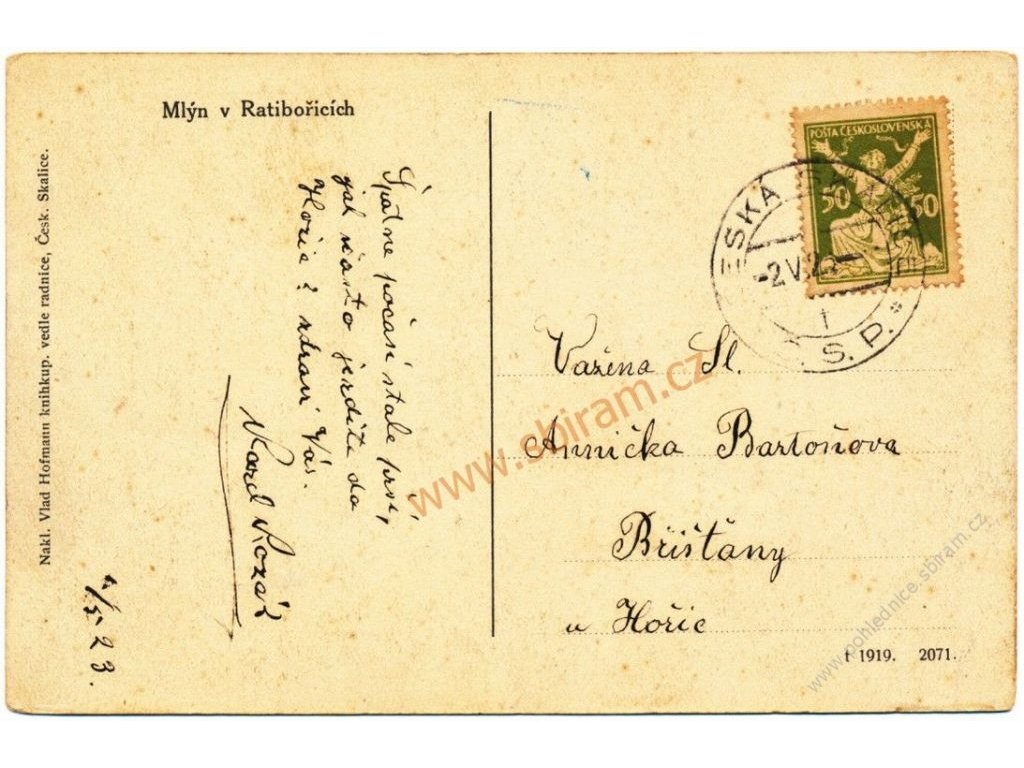 Mlýn v Ratibořicích
Nakl. Vlad Hofmann knihkup. vedle radnice, Česk. Skalice.
Špatne počasí stale prší,
jak často jezdíte do
Hořic? zdraví Vás.
Karel Kozák
5. 23.
POŠTA ČESKOSLOVENSKÁ
50 50
ESKÁ
-2.V.2
S. P. *
Vážena Sl.
Annička Bartoňova
Bříšťany
u Hořic
f 1919. 2071.
www.sbiram.cz
www.pohlednice.sbiram.cz